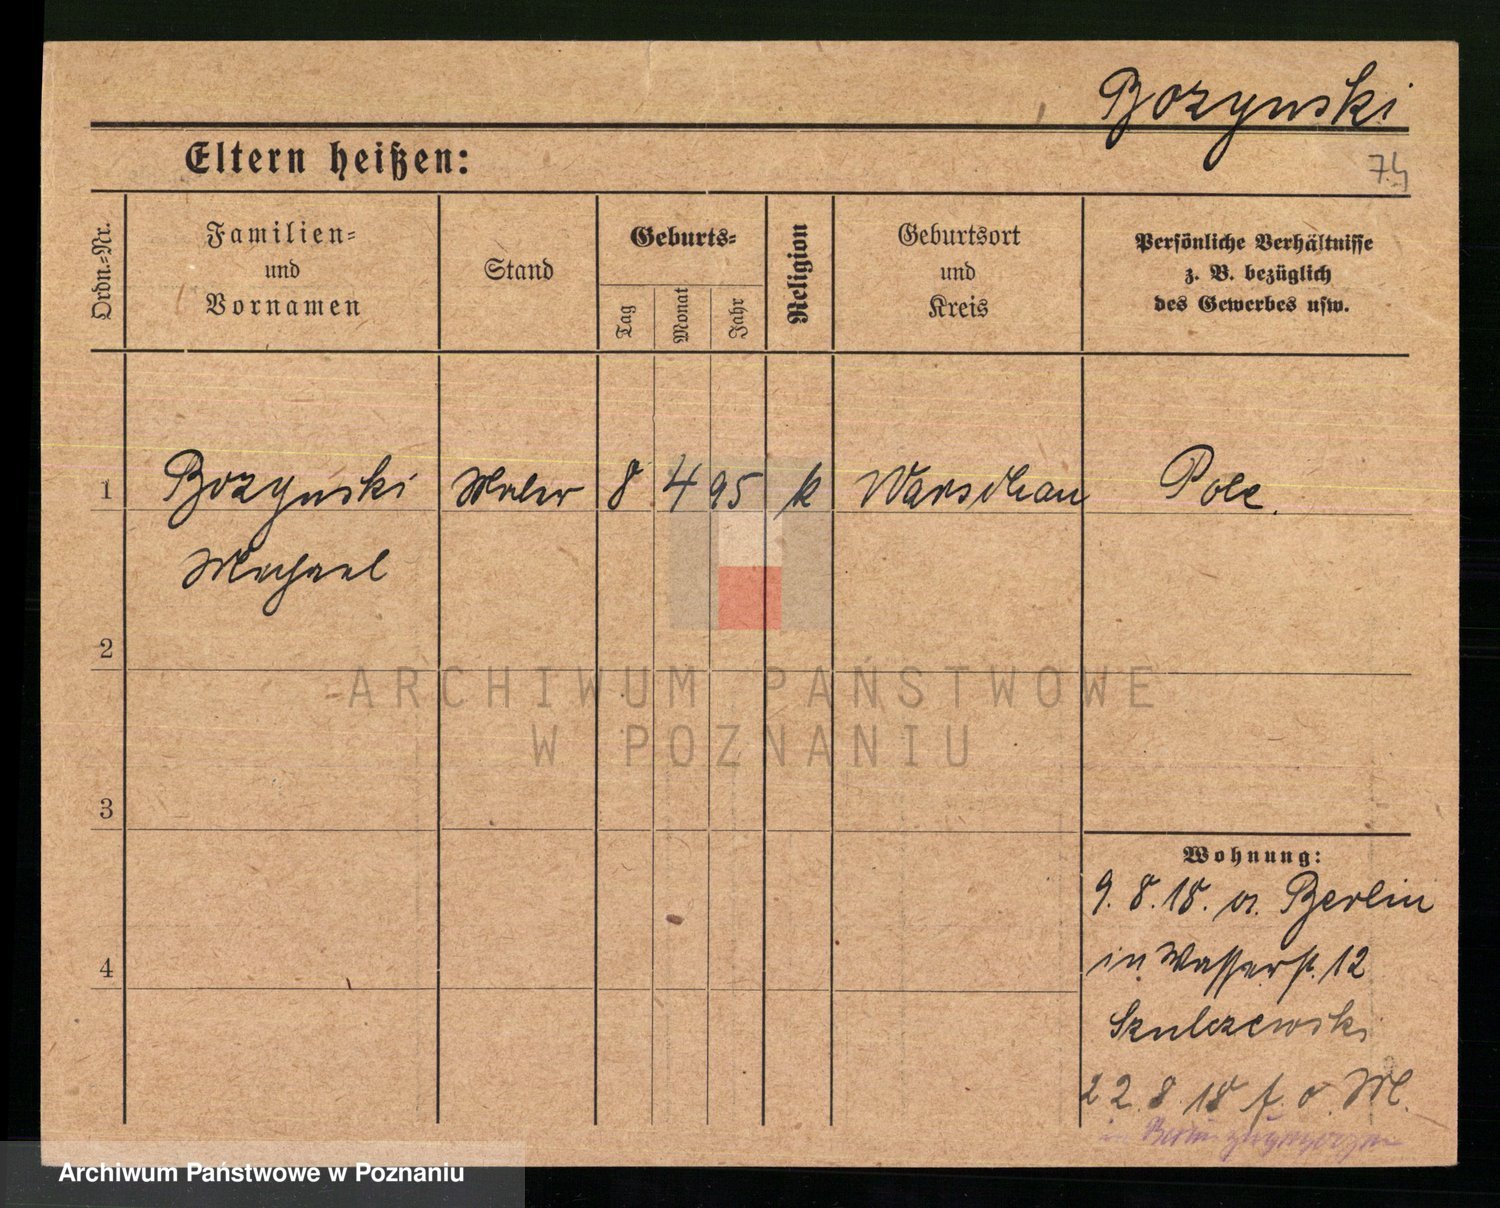 Bozynski
74
Eltern heißen:
Ordn.-Nr.
Familien-
und
Vornamen
Stand
Geburts-
Tag
Monat
Jahr
Religion
Geburtsort
und
Kreis
Persönliche Verhältnisse
z. B. bezüglich
des Gewerbes usw.
1 Bozynski Maler 8 4 95 k Warschau Pole.
Michael
2
ARCHIWUM PAŃSTWOWE
W POZNANIU
3
Wohnung:
9. 8. 18. a. Berlin
in Wasserst. 12
4
Szulczewski
22. 8. 18 f. o. M.
in Berlin zugezogen
Archiwum Państwowe w Poznaniu